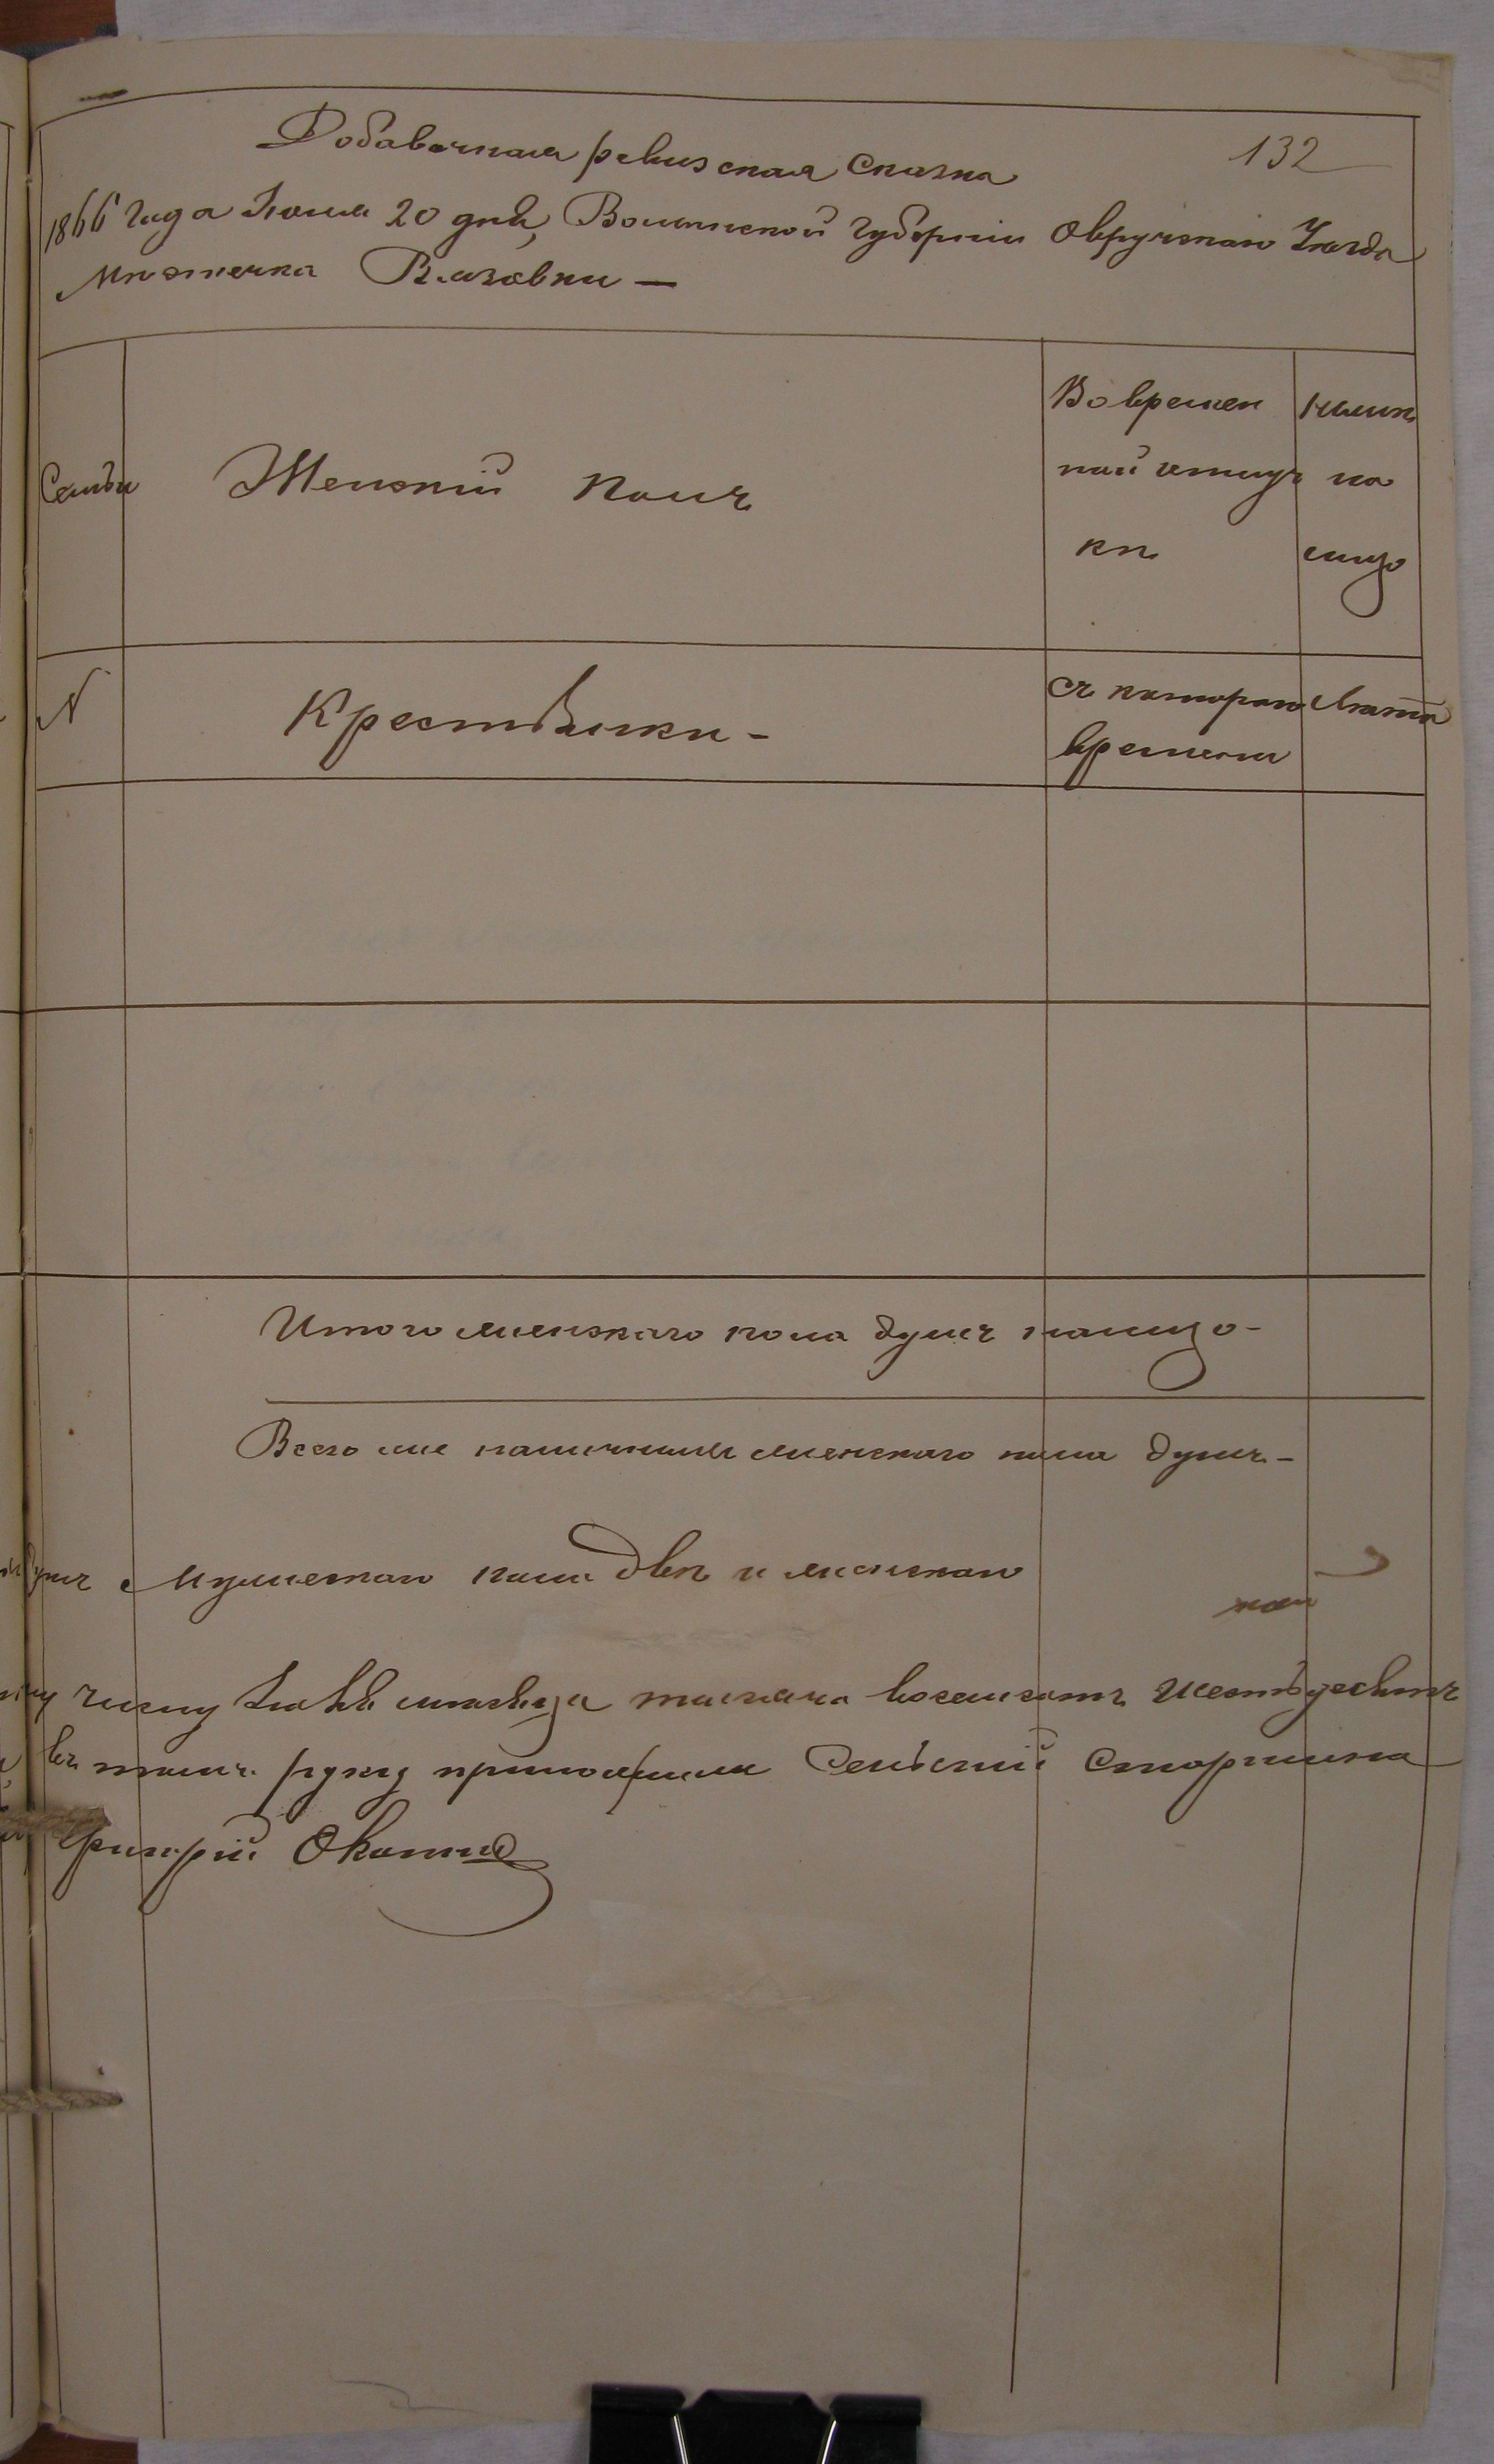 132
Добавочная ревизская сказка
1866 Года Іюня 20 дня, Волынской губерніи Овручскаго Уѣзда
мѣстечка Власовки —
Семьи
Женскій полъ
Во времен
ной отлуч
кѣ
Нынѣ
на
лицо
N
Крестьянки -
съ котораго
времени
Лѣта
Итого женскаго пола душъ налицо -
Всего же наличныхъ женскаго пола душъ -
душъ мужескаго пола двѣ и женскаго
числу тысяча восемсотъ шестьдесятъ
въ томъ руку приложилъ Сельскій Старшина
Григорій